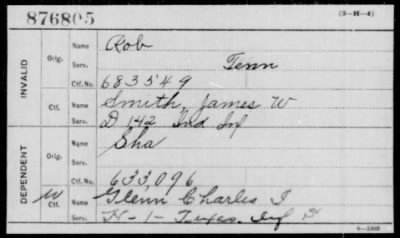 876805 (3-H-4)
INVALID
Orig. Name Rob
Serv. Tenn
Ctf. No. 683549
Ctf. Name Smith, James W
Serv. D 142 Ind Inf
DEPENDENT
Orig. Name Sha
Serv.
Ctf. No. 633,096
W Ctf. Name Glenn Charles I
Serv. H-1- Texas Inf